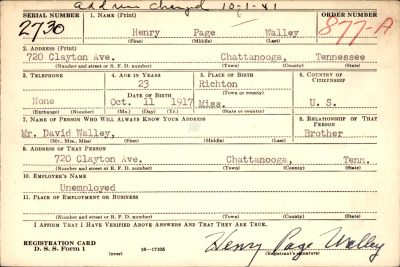 address changed 10-1-41
SERIAL NUMBER 1. NAME (Print) ORDER NUMBER
2730 Henry Page Walley 877-A
(First) (Middle) (Last)
2. ADDRESS (Print)
720 Clayton Ave. Chattanooga, Tennessee
(Number and street or R. F. D. number) (Town) (County) (State)
3. TELEPHONE 4. AGE IN YEARS 5. PLACE OF BIRTH 6. COUNTRY OF CITIZENSHIP
23 Richton
DATE OF BIRTH (Town or county)
None Oct. 11 1917 Miss. U. S.
(Exchange) (Number) (Mo.) (Day) (Yr.) (State or country)
7. NAME OF PERSON WHO WILL ALWAYS KNOW YOUR ADDRESS 8. RELATIONSHIP OF THAT PERSON
Mr. David Walley, Brother
(Mr., Mrs., Miss) (First) (Middle) (Last)
9. ADDRESS OF THAT PERSON
720 Clayton Ave. Chattanooga, Tenn.
(Number and street or R. F. D. number) (Town) (County) (State)
10. EMPLOYER'S NAME
Unemployed
11. PLACE OF EMPLOYMENT OR BUSINESS
(Number and street or R. F. D. number) (Town) (County) (State)
I AFFIRM THAT I HAVE VERIFIED ABOVE ANSWERS AND THAT THEY ARE TRUE.
REGISTRATION CARD
D. S. S. Form 1 (over) 16—17105 Henry Page Walley
(Registrant's signature)